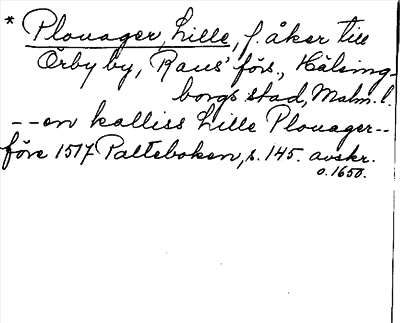 * Plouager, Lille, f. åker till
Örby by, Raus' förs., Hälsing-
borgs stad, Malm. l.
-- en kalliss Lille Plouager --
före 1517 Palteboken, s. 145. avskr.
o. 1650.